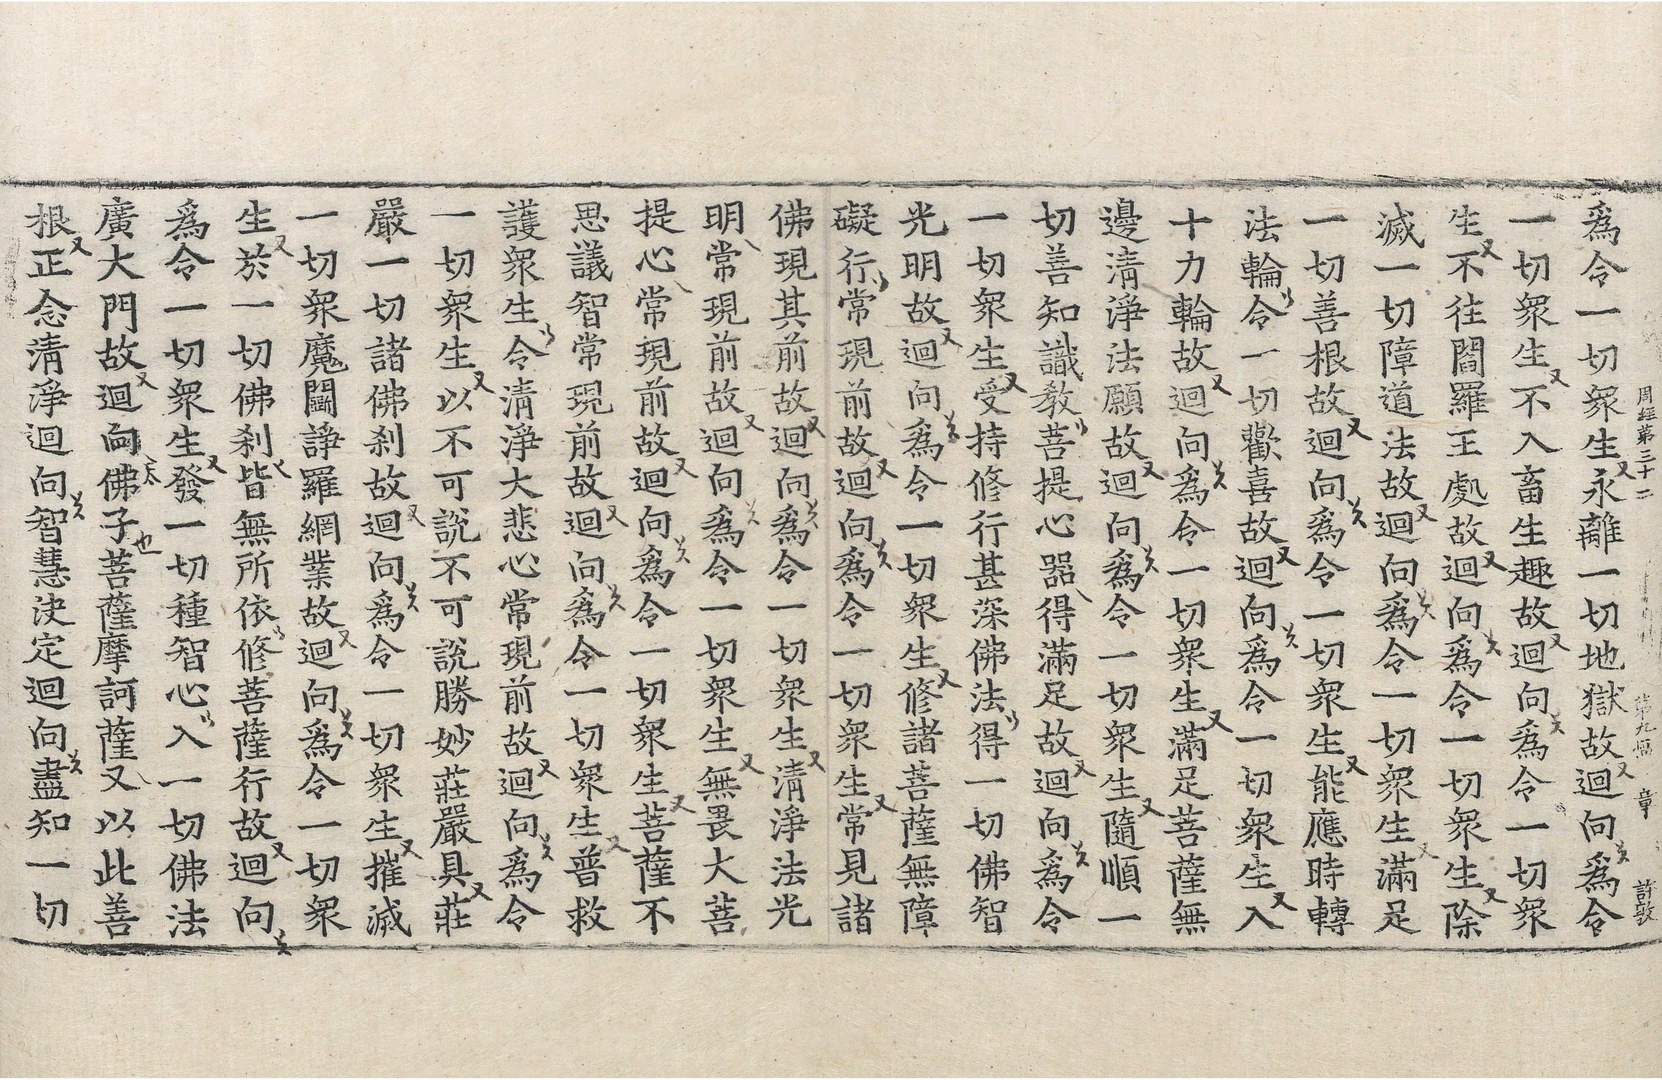 周經第三十二 第九幅 章
爲令一切衆生永離一切地獄故迴向爲令
一切衆生不入畜生趣故迴向爲令一切衆
生不往閻羅王處故迴向爲令一切衆生除
滅一切障道法故迴向爲令一切衆生滿足
一切善根故迴向爲令一切衆生能應時轉
法輪令一切歡喜故迴向爲令一切衆生入
十力輪故迴向爲令一切衆生滿足菩薩無
邊清淨法願故迴向爲令一切衆生隨順一
切善知識教菩提心器得滿足故迴向爲令
一切衆生受持修行甚深佛法得一切佛智
光明故迴向爲令一切衆生修諸菩薩無障
礙行常現前故迴向爲令一切衆生常見諸
佛現其前故迴向爲令一切衆生清淨法光
明常現前故迴向爲令一切衆生無畏大菩
提心常現前故迴向爲令一切衆生菩薩不
思議智常現前故迴向爲令一切衆生普救
護衆生令清淨大悲心常現前故迴向爲令
一切衆生以不可說不可說勝妙莊嚴具莊
嚴一切諸佛刹故迴向爲令一切衆生摧滅
一切衆魔鬪諍羅網業故迴向爲令一切衆
生於一切佛刹皆無所依修菩薩行故迴向
爲令一切衆生發一切種智心入一切佛法
廣大門故迴向佛子菩薩摩訶薩又以此善
根正念清淨迴向智慧決定迴向盡知一切